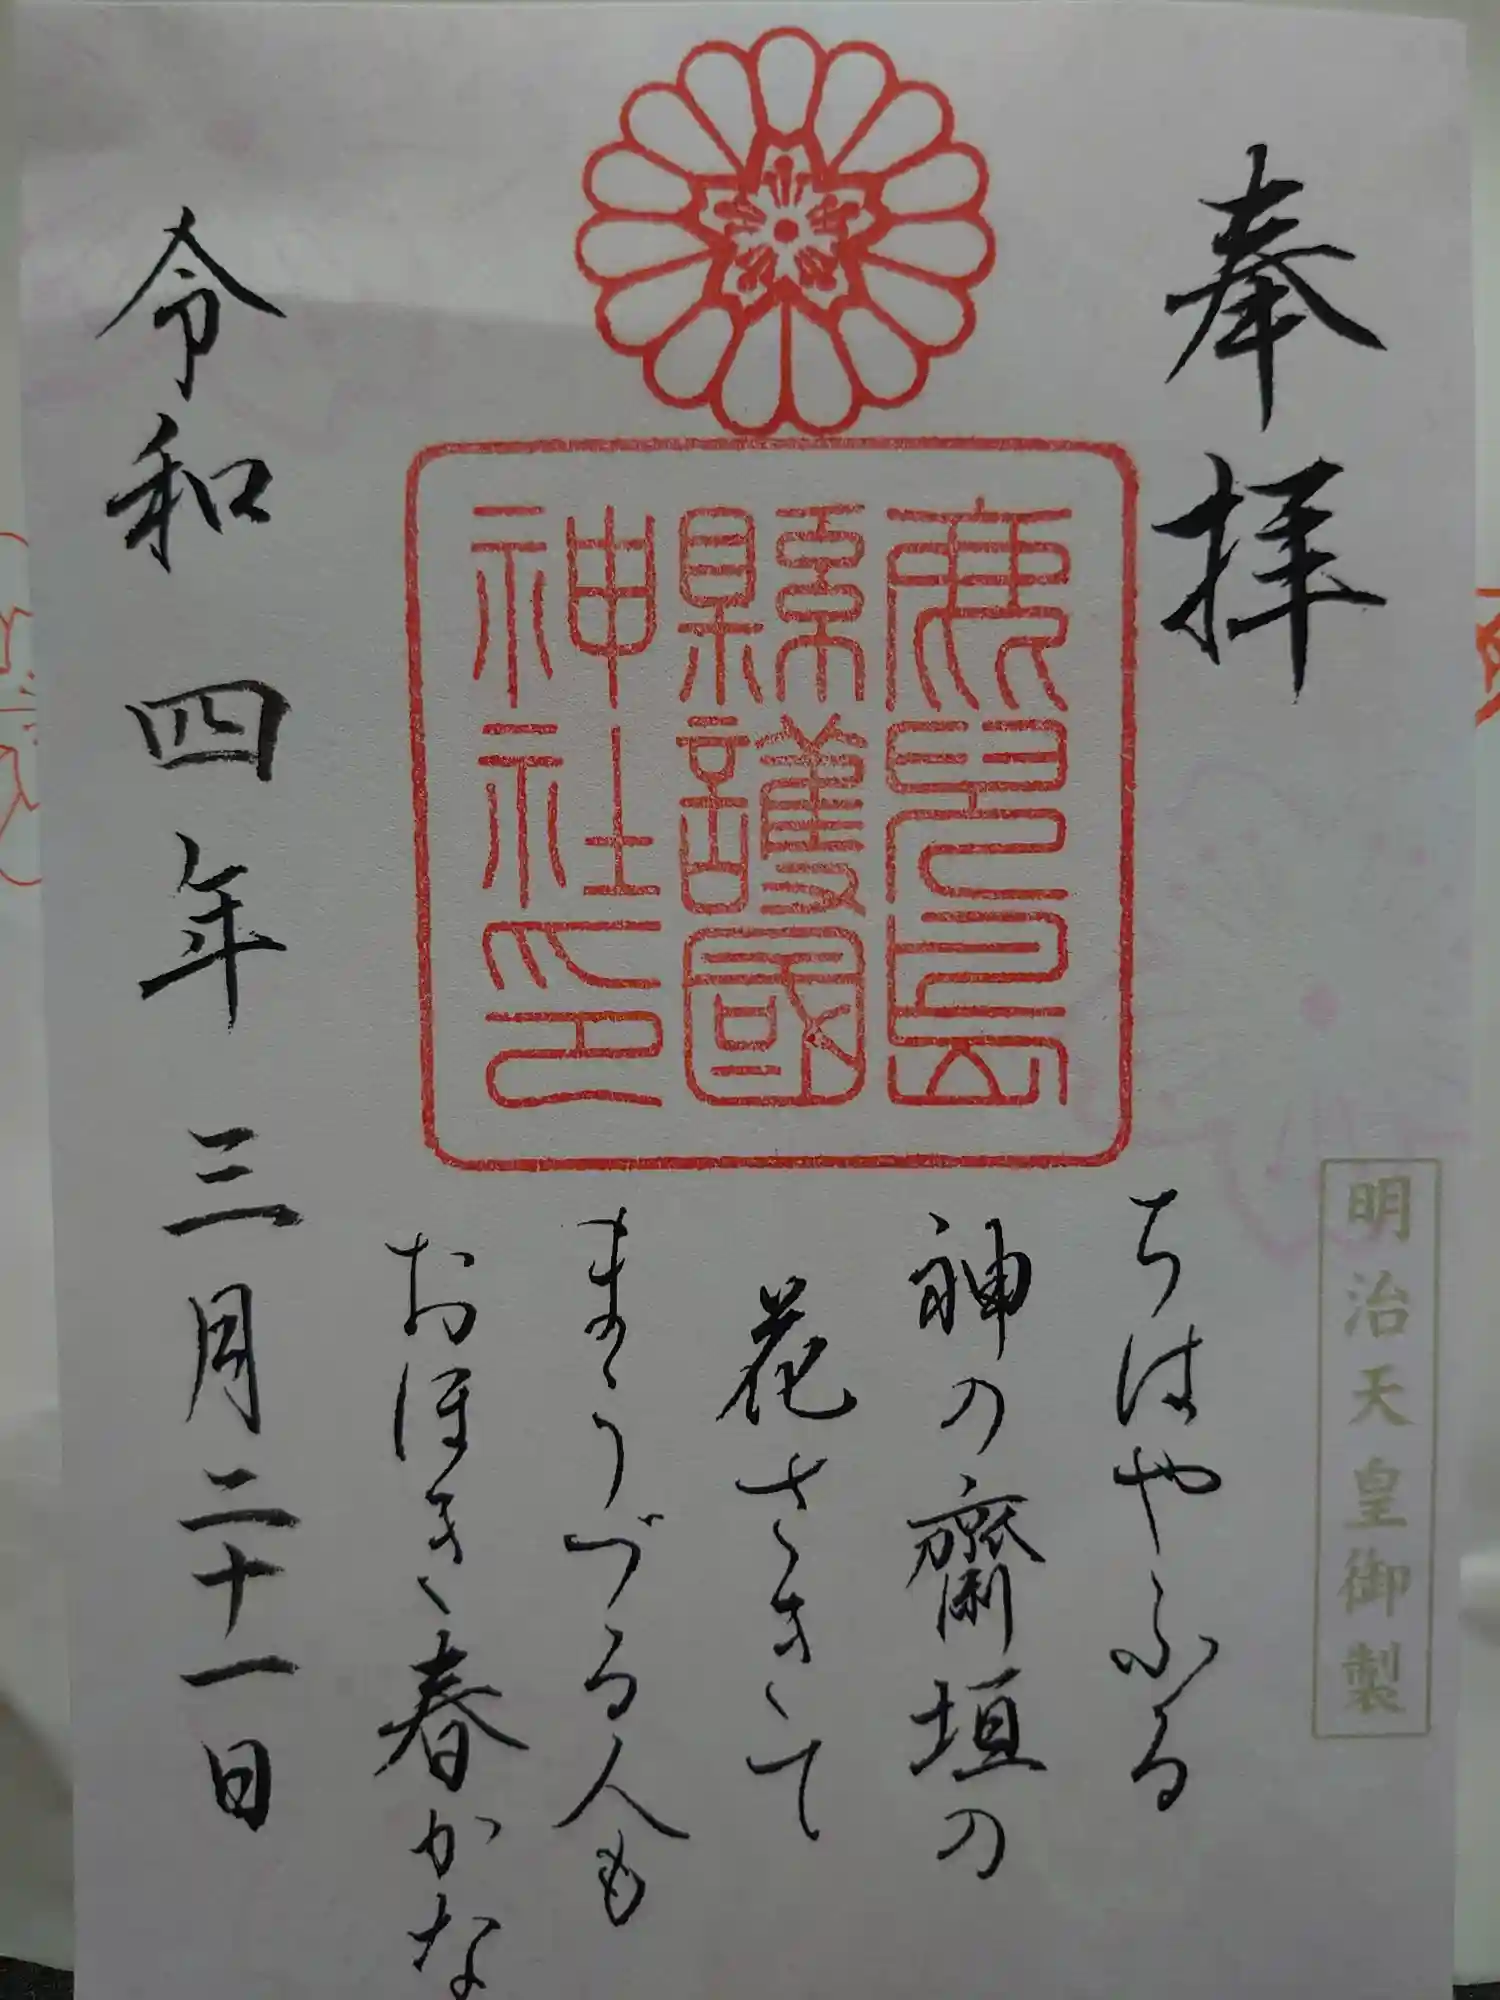 奉拝
明治天皇御製
鹿児島
縣護國
神社印
ちはやふる
神の齋垣の
花さきて
まうづる人も
おほき春かな
令和四年三月二十一日